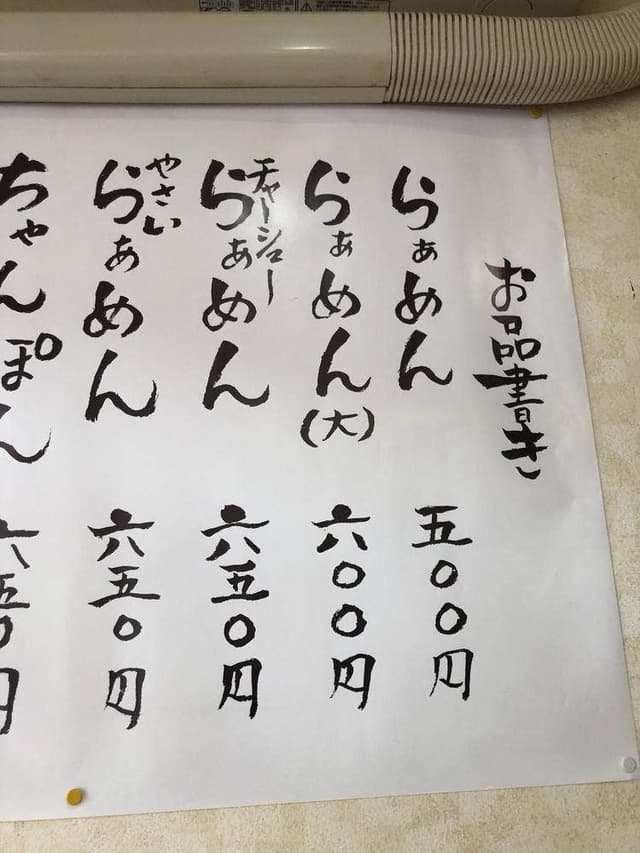 お品書き
らぁめん 五〇〇円
らぁめん(大) 六〇〇円
チャーシューらぁめん 六五〇円
やさいらぁめん 六五〇円
ちゃんぽん 六五〇円